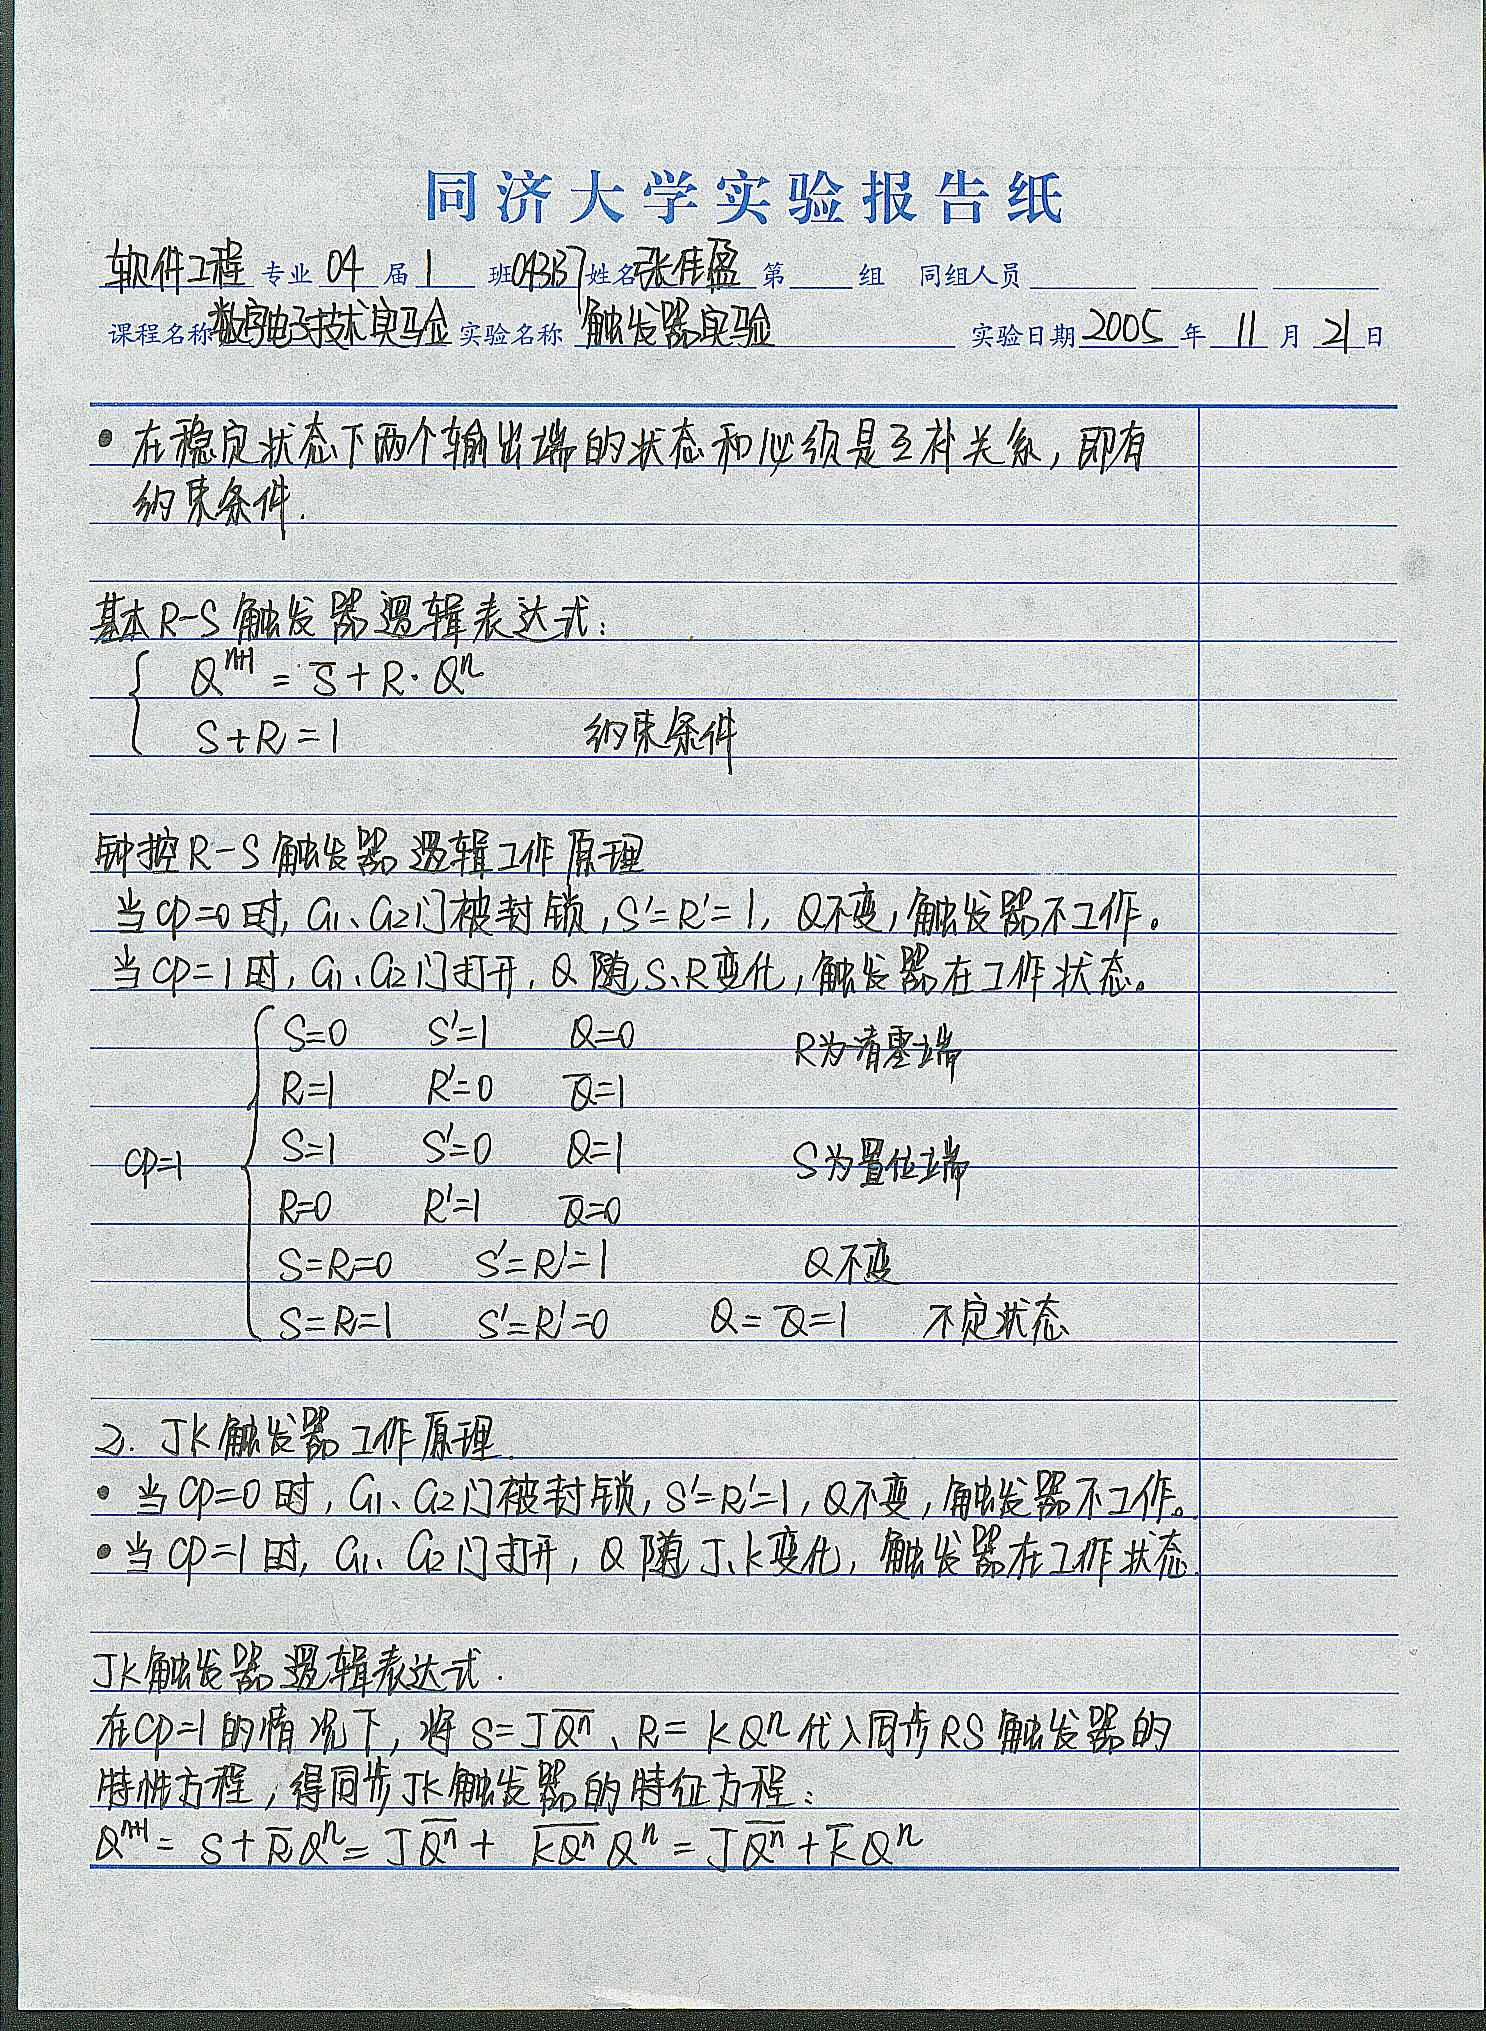 同济大学实验报告纸
软件工程 专业 04 届 1 班 043137 姓名 张佳盈 第 组 同组人员
课程名称 数字电子技术实验 实验名称 触发器实验 实验日期 2005 年 11 月 21 日
• 在稳定状态下两个输出端的状态和必须是互补关系, 即有
约束条件.
基本R-S触发器逻辑表达式:
Qⁿ⁺¹ = S̅ + R · Qⁿ
S+R=1 约束条件
钟控R-S触发器逻辑工作原理
当CP=0时, G1、G2门被封锁, S'=R'=1, Q不变, 触发器不工作。
当CP=1时, G1、G2门打开, Q随S、R变化, 触发器在工作状态。
S=0 S'=1 Q=0 R为清零端
R=1 R'=0 Q̅=1
CP=1 S=1 S'=0 Q=1 S为置位端
R=0 R'=1 Q̅=0
S=R=0 S'=R'=1 Q不变
S=R=1 S'=R'=0 Q=Q̅=1 不定状态
2. JK触发器工作原理.
• 当CP=0时, G1、G2门被封锁, S'=R'=1, Q不变, 触发器不工作。
• 当CP=1时, G1、G2门打开, Q随J、K变化, 触发器在工作状态.
JK触发器逻辑表达式.
在CP=1的情况下, 将 S=JQ̅ⁿ̅、R=KQⁿ代入同步RS触发器的
特性方程, 得同步JK触发器的特征方程:
Qⁿ⁺¹ = S + R̅Qⁿ = JQ̅ⁿ̅ + K̅Q̅ⁿ̅Qⁿ = JQ̅ⁿ̅ + K̅Qⁿ